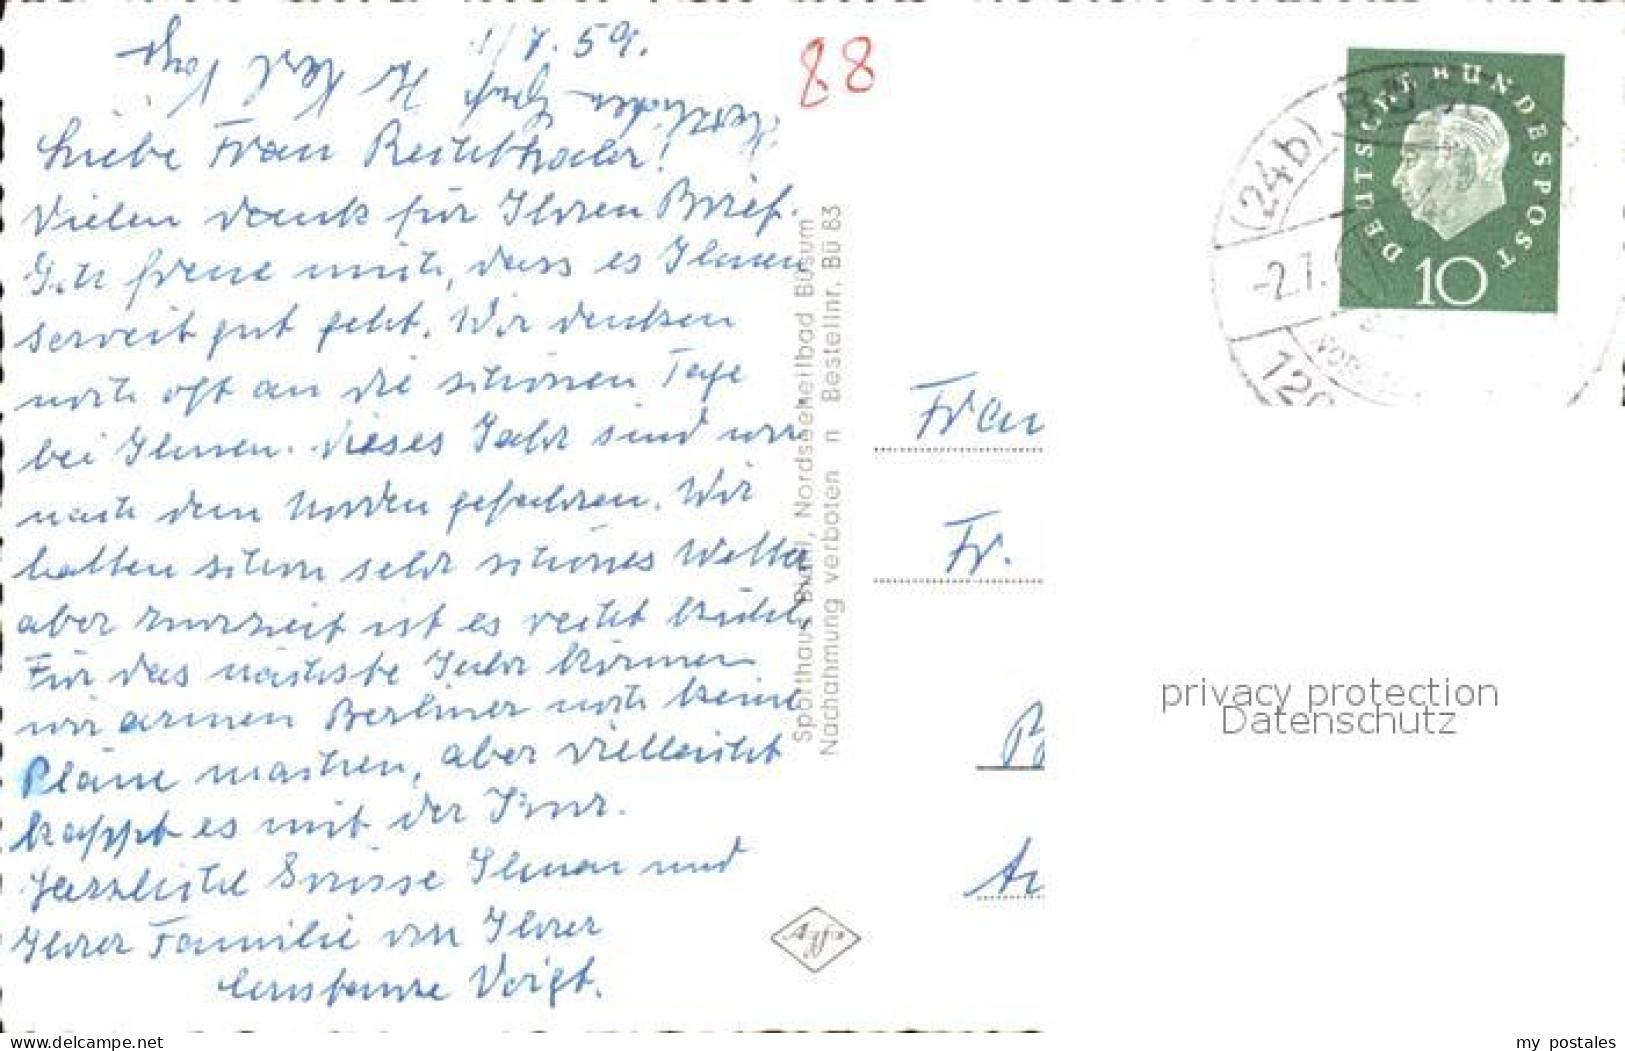 1/7.59.
Herzlichen Gruß Ihr Karl Voigt
Liebe Frau
Vielen Dank für Ihren Brief.
Ich freue mich, dass es Ihnen
soweit gut geht. Wir denken
noch oft an die schönen Tage
bei Ihnen. Dieses Jahr sind wir
nach dem Norden gefahren. Wir
hatten schon sehr schönes Wetter
aber zurzeit ist es recht kühl.
Für das nächste Jahr können
wir armen Berliner noch keine
Pläne machen, aber vielleicht
kappt es mit der Kur.
Herzliche Grüsse Ihnen und
Ihrer Familie von Ihrer
Constanze Voigt.
88
Sporthaus Biehl, Nordseeheilbad Büsum
Nachahmung verboten n Bestellnr. Bü 83
Agfa
DEUTSCHE BUNDESPOST
10
(24b)
-2.7.
Frau
Fr.
privacy protection
Datenschutz
www.delcampe.net
my_postales